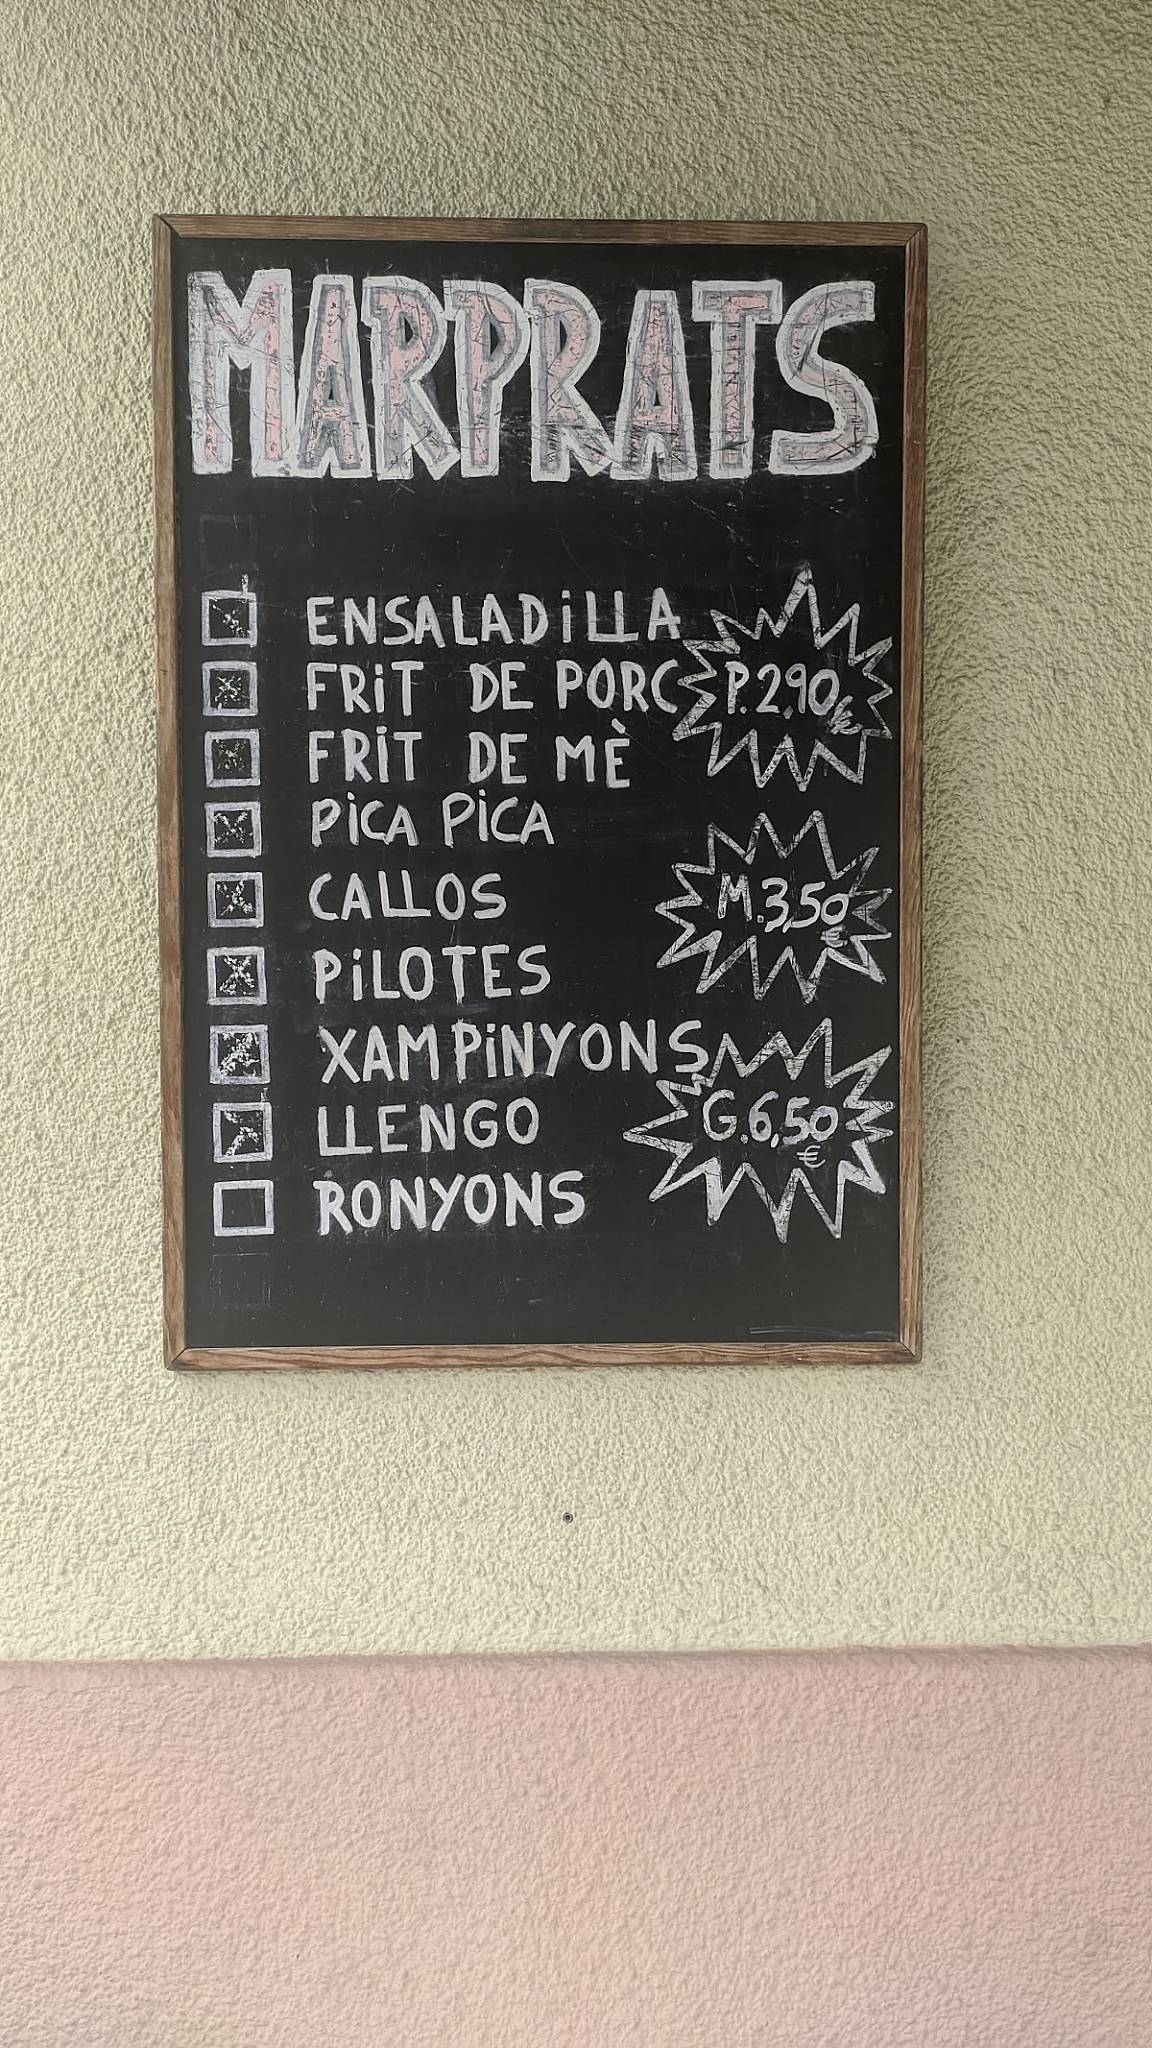 MARPRATS
ENSALADiLLA
FRiT DE PORC
P.2,90€
FRiT DE MÈ
PiCA PiCA
CALLOS
M.3,50€
PiLOTES
XAMPiNYONS
LLENGO
G.6,50€
RONYONS